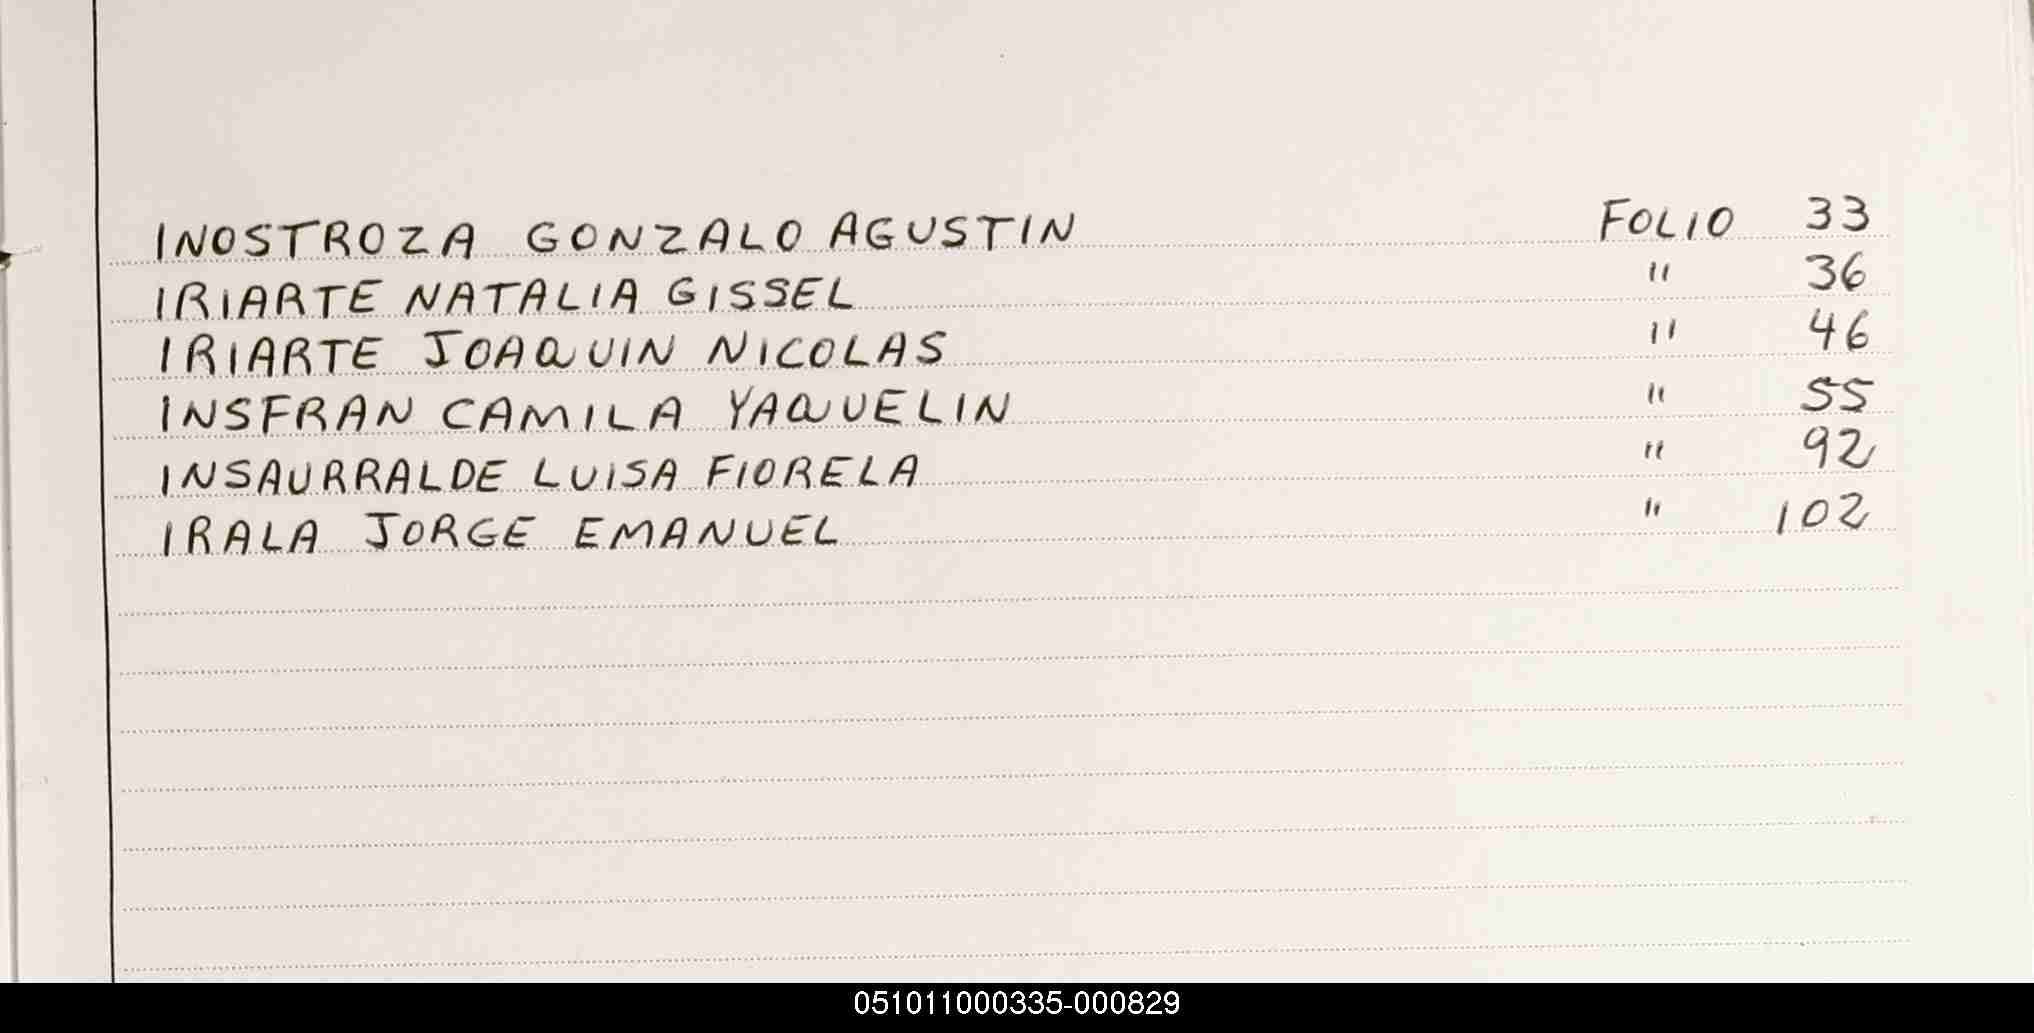 INOSTROZA GONZALO AGUSTIN FOLIO 33
IRIARTE NATALIA GISSEL " 36
IRIARTE JOAQUIN NICOLAS " 46
INSFRAN CAMILA YAQUELIN " 55
INSAURRALDE LUISA FIORELA " 92
IRALA JORGE EMANUEL " 102
051011000335-000829